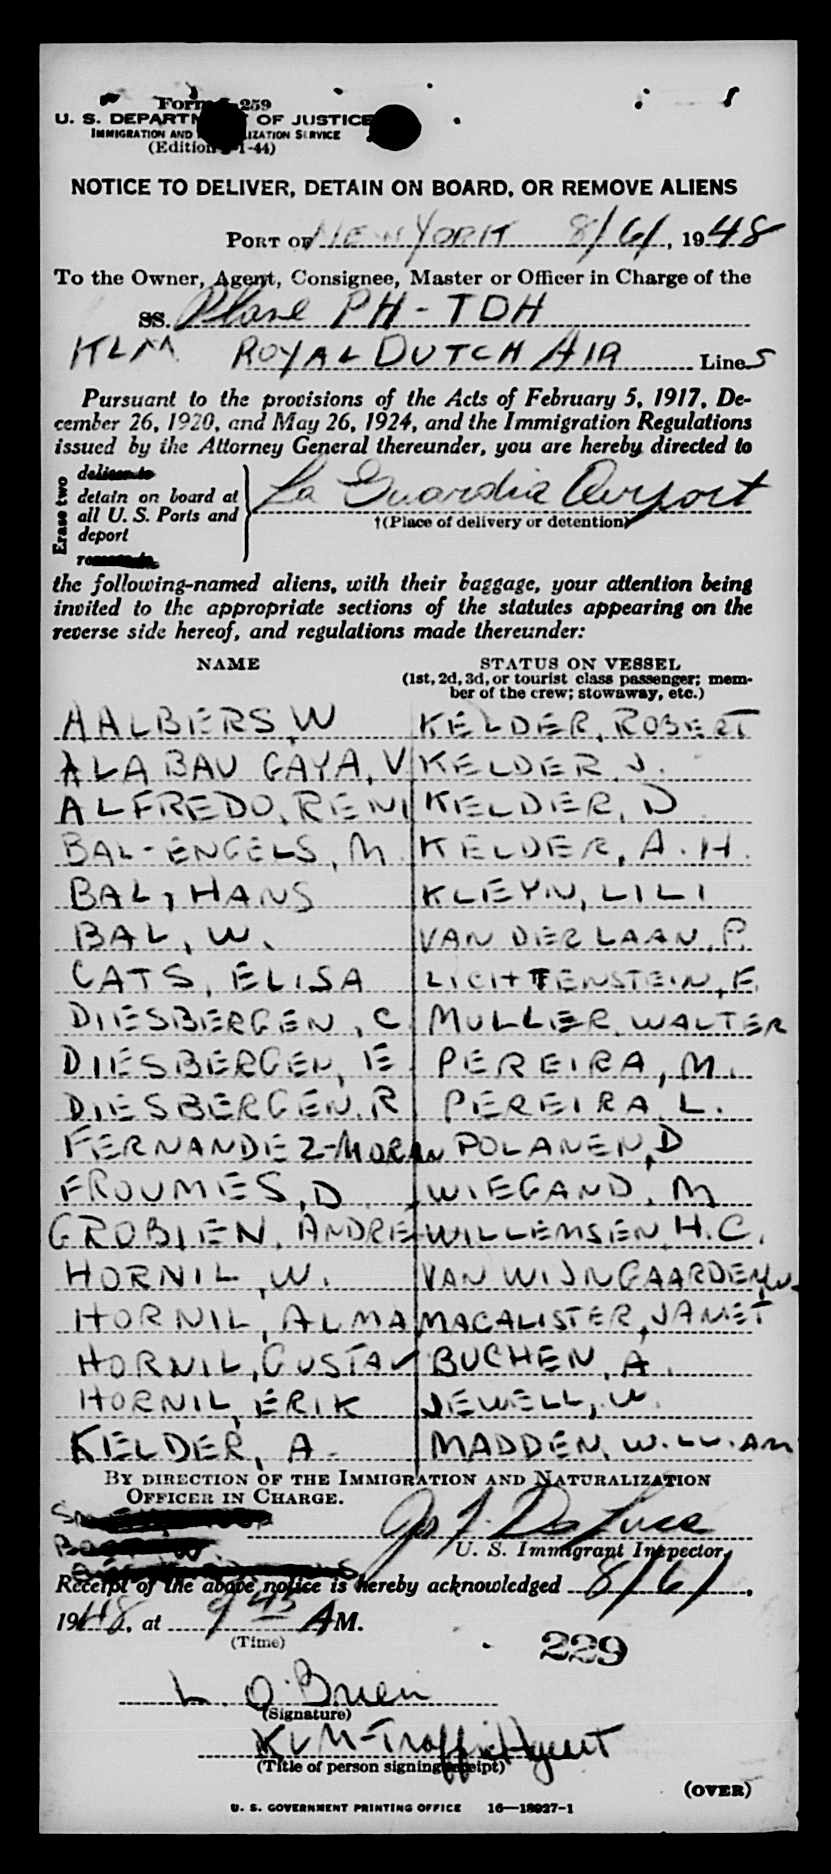 Form 259
U. S. DEPARTM OF JUSTICE
IMMIGRATION AND IZATION SERVICE
(Edition 1-44)
NOTICE TO DELIVER, DETAIN ON BOARD, OR REMOVE ALIENS
PORT OF NEW YORK 8/6/, 1948
To the Owner, Agent, Consignee, Master or Officer in Charge of the
SS. Plane PH-TDH
KLM ROYAL DUTCH AIR Lines
Pursuant to the provisions of the Acts of February 5, 1917, De-
cember 26, 1920, and May 26, 1924, and the Immigration Regulations
issued by the Attorney General thereunder, you are hereby directed to
Erase two
deliver to
detain on board at
all U. S. Ports and
deport
La Guardia Airport
†(Place of delivery or detention)
the following-named aliens, with their baggage, your attention being
invited to the appropriate sections of the statutes appearing on the
reverse side hereof, and regulations made thereunder:
NAME STATUS ON VESSEL
(1st, 2d, 3d, or tourist class passenger; mem-
ber of the crew; stowaway, etc.)
AALBERS, W KELDER, ROBERT
ALABAU GAYA, V KELDER, J.
ALFREDO, RENI KELDER, D
BAL-ENGELS, M. KELDER, A.H.
BAL, HANS KLEYN, LILI
BAL, W. VAN DER LAAN, P.
CATS, ELISA LICHTENSTEIN, F.
DIESBERGEN, C. MULLER, WALTER
DIESBERGEN, E PEREIRA, M.
DIESBERGEN, R PEREIRA, L.
FERNANDEZ-MORAN POLANEN, D
FROUMES, D WIEGAND, M
GROBIEN, ANDRE WILLEMSEN, H.C.
HORNIL, W. VAN WIJNGAARDEN, W.
HORNIL, ALMA MACALISTER, JANET
HORNIL, GUSTAV BUCHEN, A.
HORNIL, ERIK JEWELL, W.
KELDER, A. MADDEN, WILLIAM
BY DIRECTION OF THE IMMIGRATION AND NATURALIZATION
OFFICER IN CHARGE.
Jos J. De Luca
U. S. Immigrant Inspector.
Receipt of the above notice is hereby acknowledged 8/6/,
1948, at 9 45 AM.
(Time)
229
L O'Brien
(Signature)
KLM-Traffic Agent
(Title of person signing receipt)
(OVER)
U. S. GOVERNMENT PRINTING OFFICE 16—18927-1